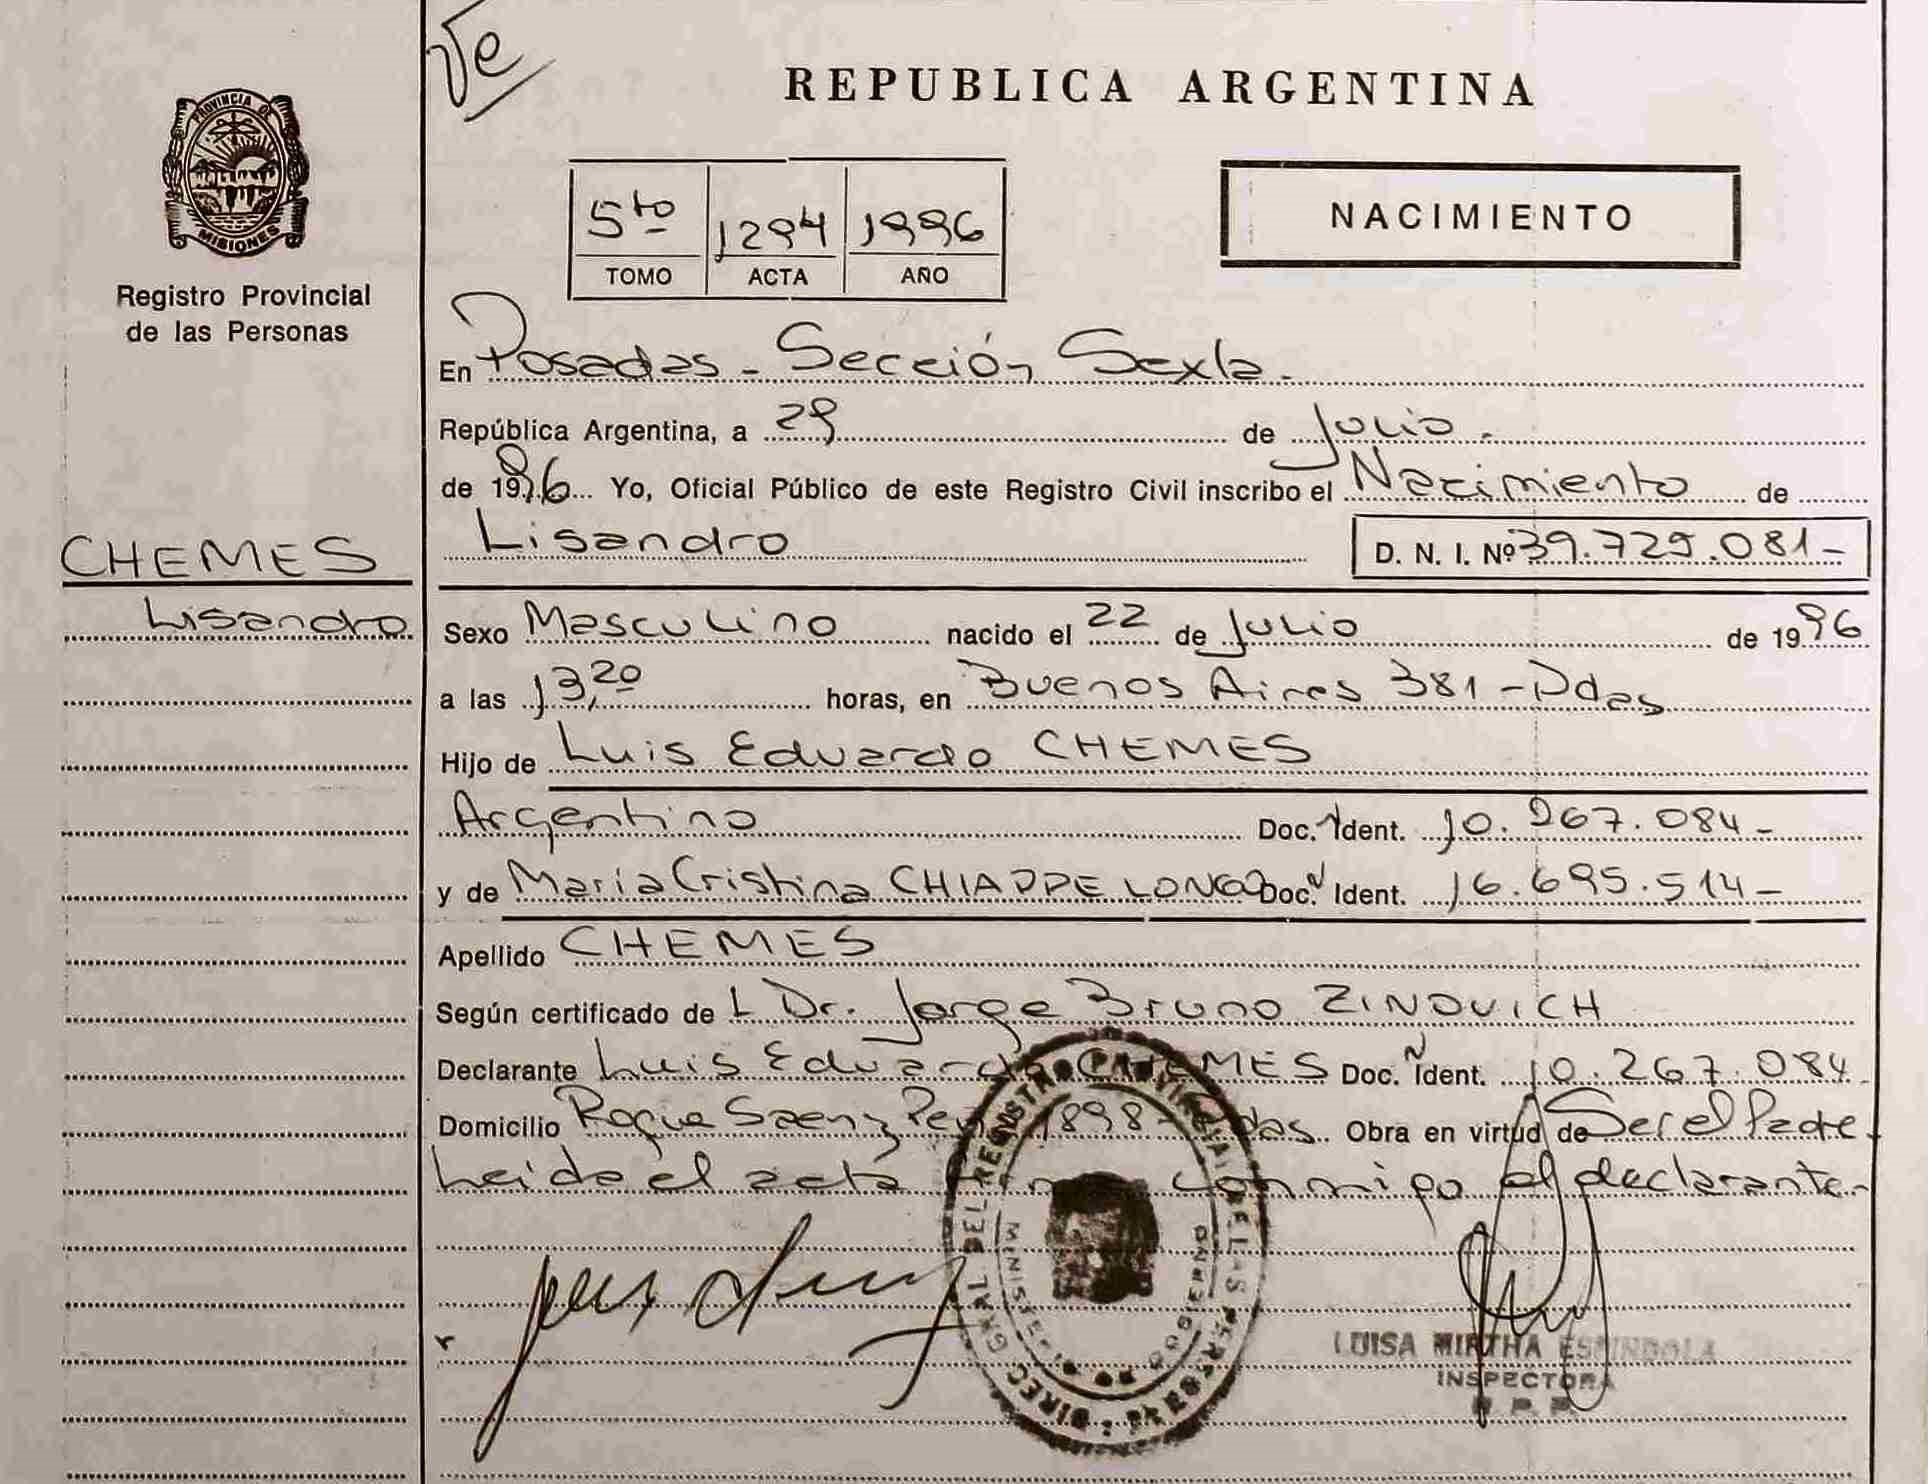 Ve
REPUBLICA ARGENTINA
PROVINCIA DE
MISIONES
Registro Provincial
de las Personas
5to 1294 1996
TOMO ACTA AÑO
NACIMIENTO
En Posadas - Sección Sexta.
República Argentina, a 29 de Julio.
de 1996 Yo, Oficial Público de este Registro Civil inscribo el Nacimiento de
Lisandro D. N. I. Nº 39.729.081-
CHEMES
Lisandro
Sexo Masculino nacido el 22 de Julio de 1996
a las 13,20 horas, en Buenos Aires 381 - Pdas
Hijo de Luis Eduardo CHEMES
Argentino Doc. Ident. 10.267.084-
y de María Cristina CHIAPPE LONGO Doc. Ident. 16.695.514-
Apellido CHEMES
Según certificado de L Dr. Jorge Bruno ZINOVICH
Declarante Luis Eduardo CHEMES Doc. Ident. 10.267.084
Domicilio Roque Saenz Peña 1898 - Pdas Obra en virtud de Ser el Padre
Leida el acta conmigo el declarante-
DIREC. GRAL. DEL REGISTRO PROVINCIAL DE LAS PERSONAS
MINISTERIO DE GOBIERNO
LUISA MIRTHA ESPINDOLA
INSPECTORA
R. P. P.